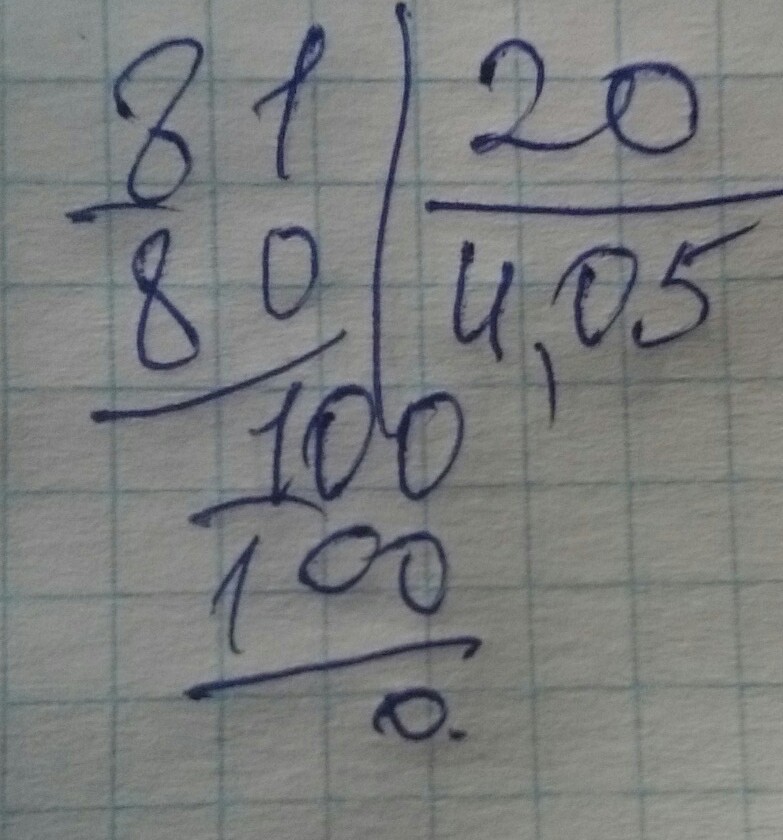 81 20
80 4,05
100
100
0.